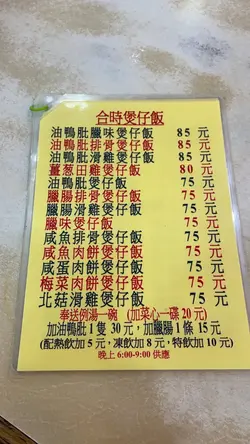 合時煲仔飯
油鴨肶臘味煲仔飯 85 元
油鴨肶排骨煲仔飯 85 元
油鴨肶滑雞煲仔飯 85 元
薑葱田雞煲仔飯 80 元
油鴨肶煲仔飯 75 元
臘腸排骨煲仔飯 75 元
臘腸滑雞煲仔飯 75 元
臘味煲仔飯 75 元
咸魚排骨煲仔飯 75 元
咸魚肉餅煲仔飯 75 元
咸蛋肉餅煲仔飯 75 元
梅菜肉餅煲仔飯 75 元
北菇滑雞煲仔飯 75 元
奉送例湯一碗 (加菜心一碟 20 元)
加油鴨肶 1 隻 30 元，加臘腸 1 條 15 元
(配熱飲加 5 元，凍飲加 8 元，特飲加 10 元)
晚上 6:00-9:00 供應